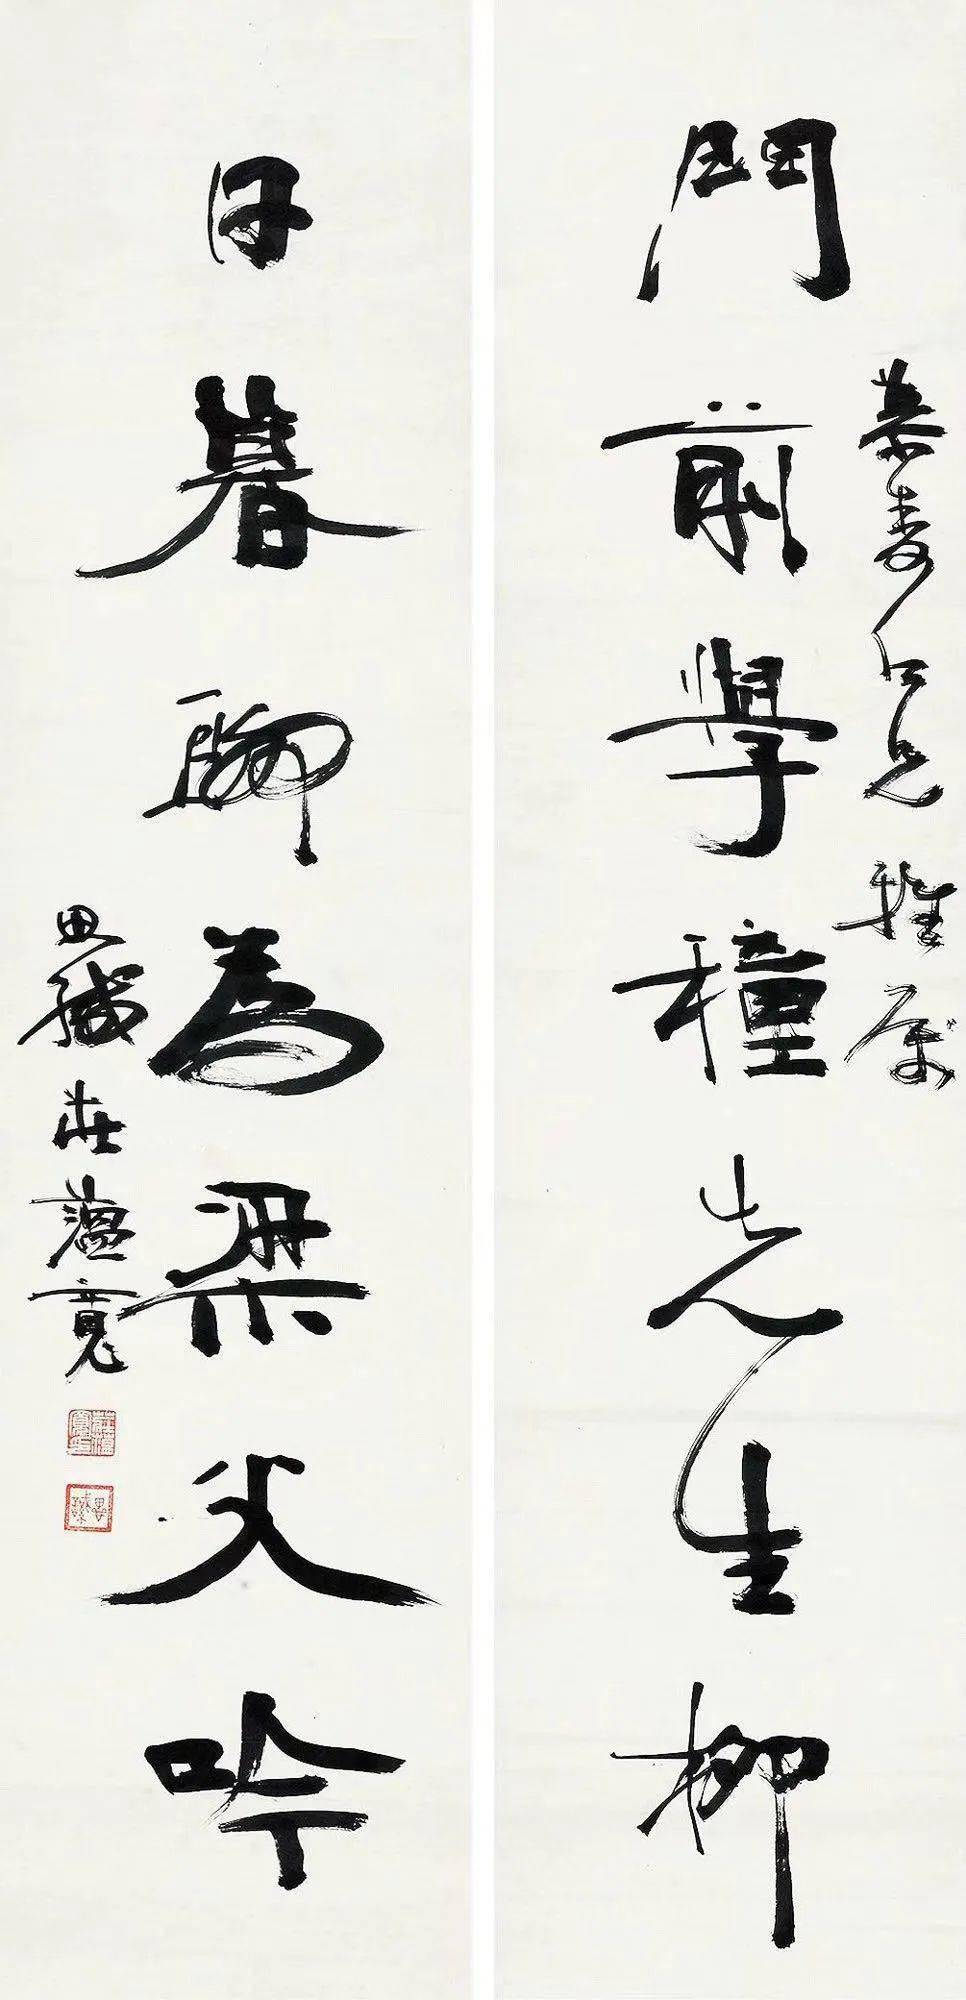 慕壽仁兄雅屬
門前學種先生柳
日暮聊為梁父吟
思緘莊蘊寬